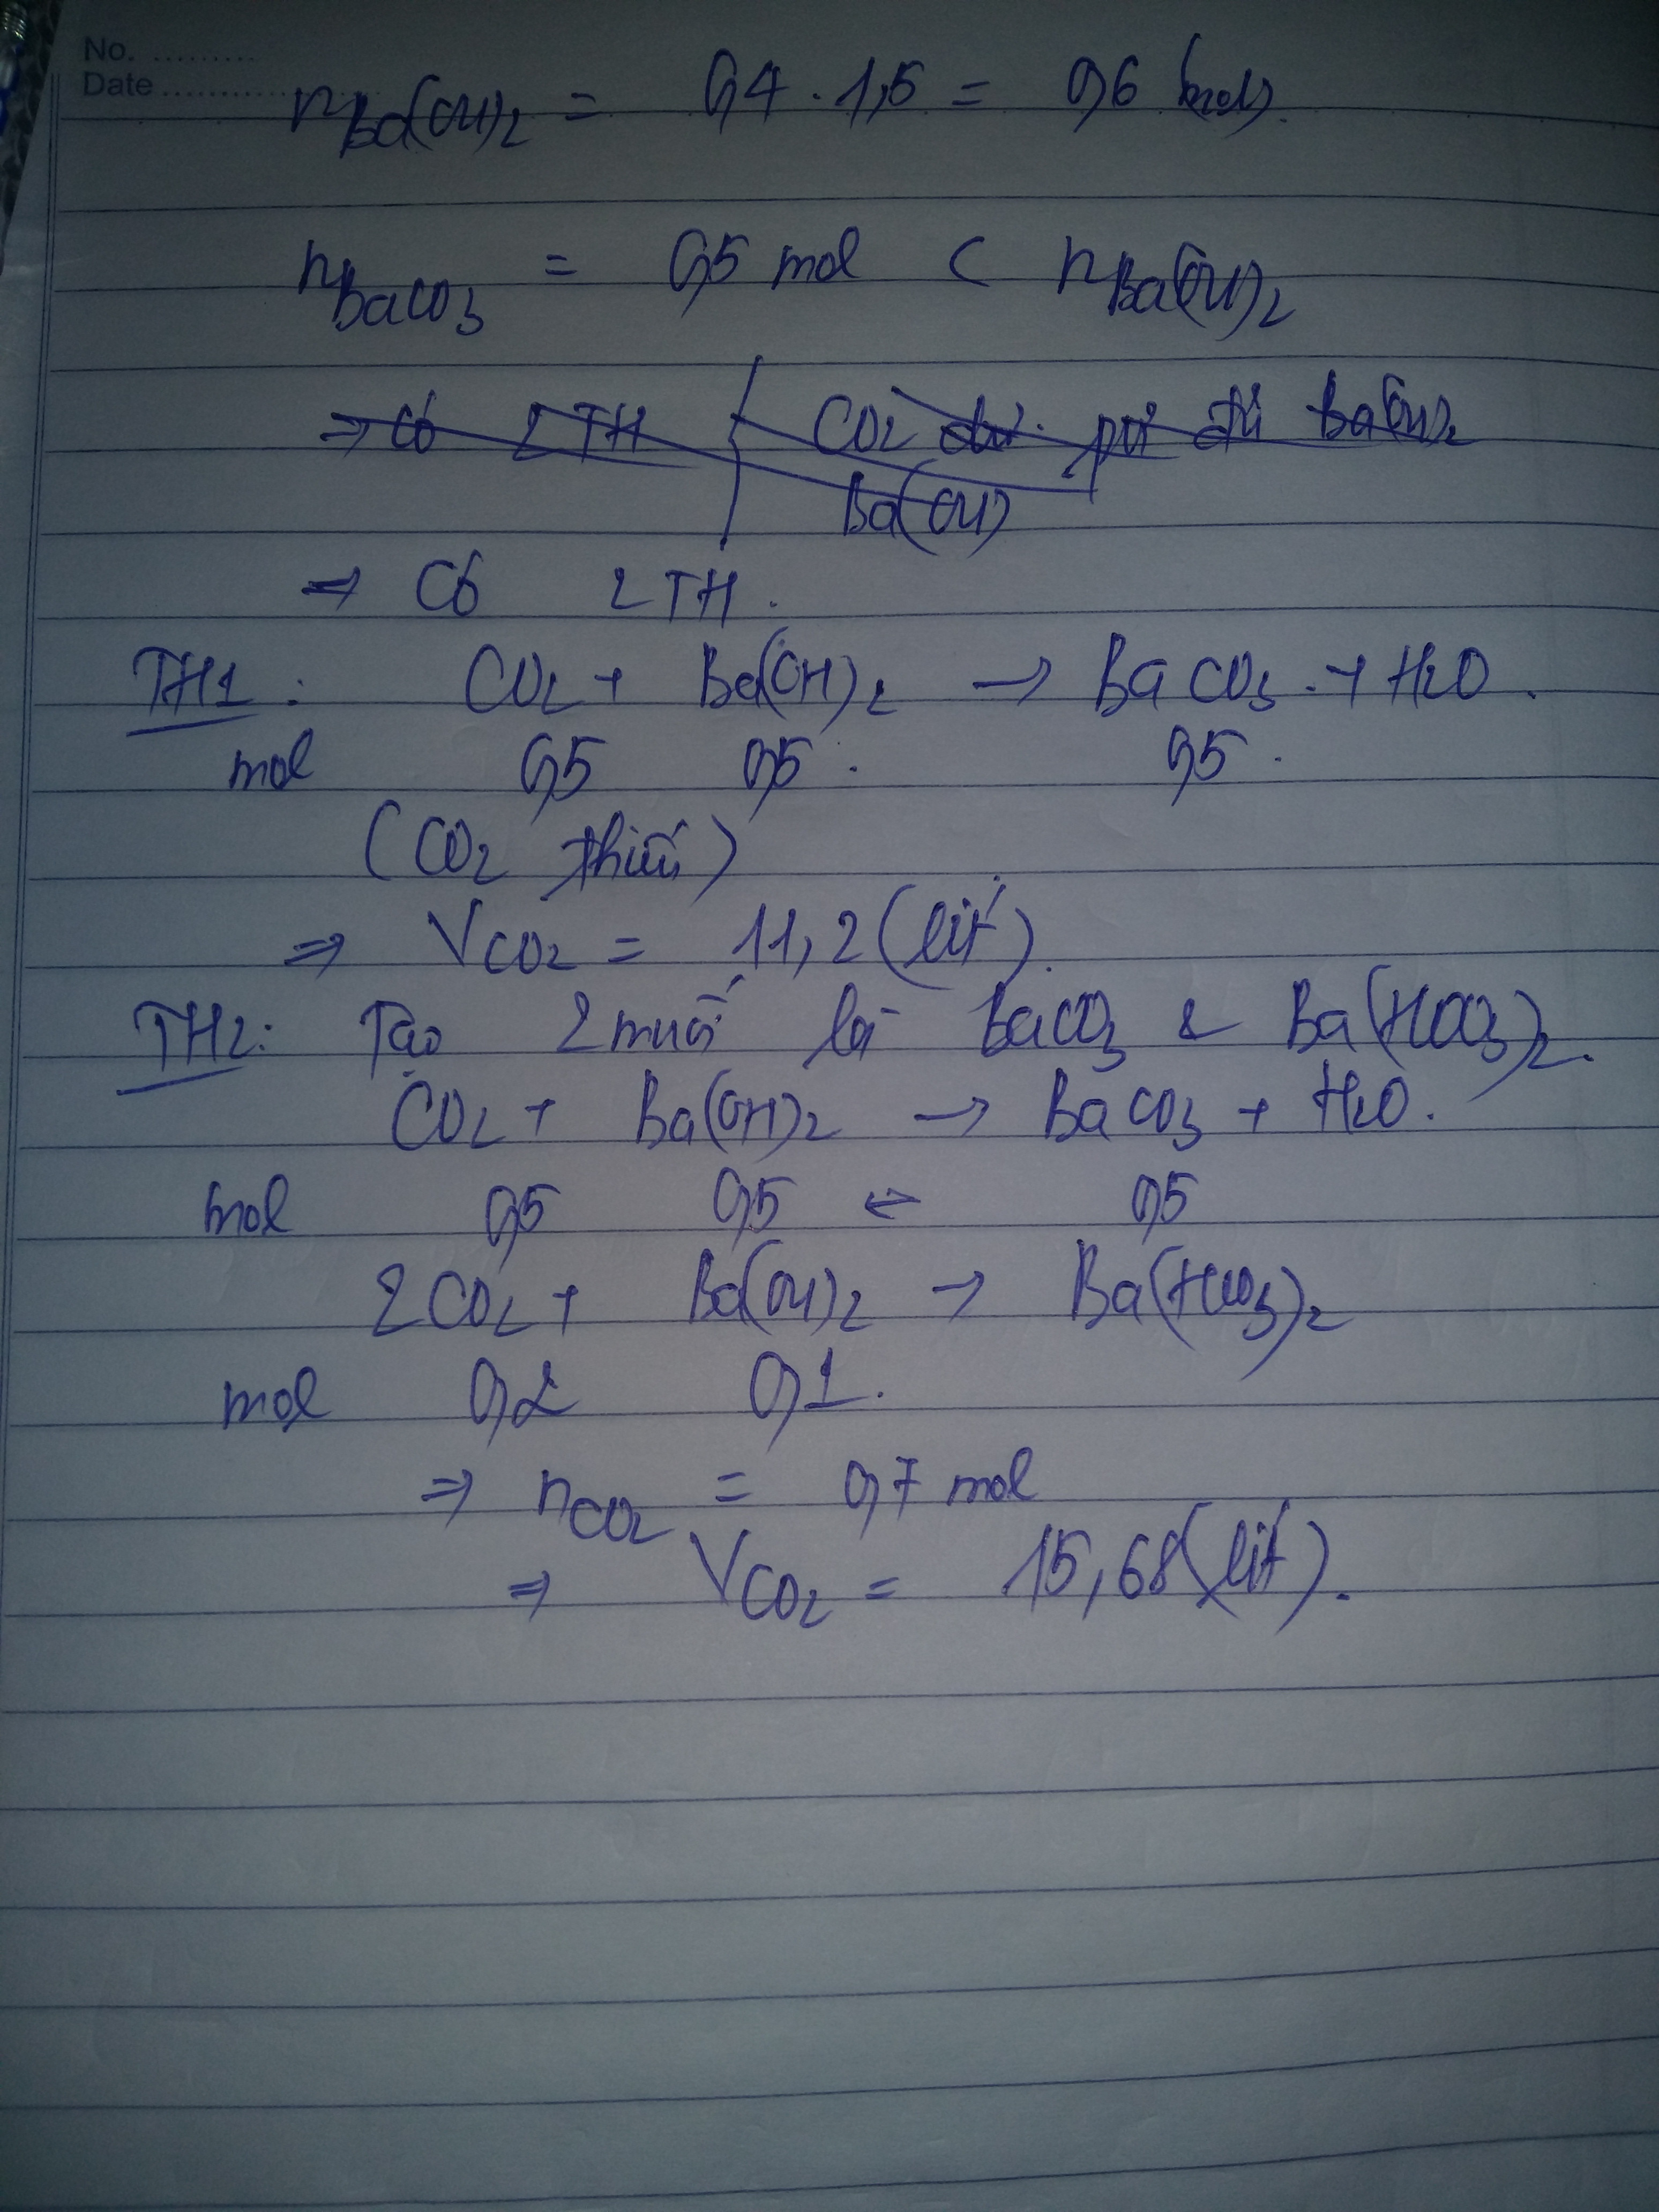 No. .........
Date ....................
nBa(OH)2 = 0,4 . 1,5 = 0,6 (mol).
nBaCO3 = 0,5 mol < nBa(OH)2
⇒ Có 2 TH { CO2 dư pứ đủ Ba(OH)2
Ba(OH)
⇒ Có 2 TH.
TH1 : CO2 + Ba(OH)2 → BaCO3 + H2O.
mol 0,5 0,5 0,5
(CO2 thiếu)
⇒ VCO2 = 11,2 (lít).
TH2: Tạo 2 muối là BaCO3 & Ba(HCO3)2.
CO2 + Ba(OH)2 → BaCO3 + H2O.
mol 0,5 0,5 ← 0,5
2CO2 + Ba(OH)2 → Ba(HCO3)2
mol 0,2 0,1.
⇒ nCO2 = 0,7 mol
⇒ VCO2 = 15,68 (lít).